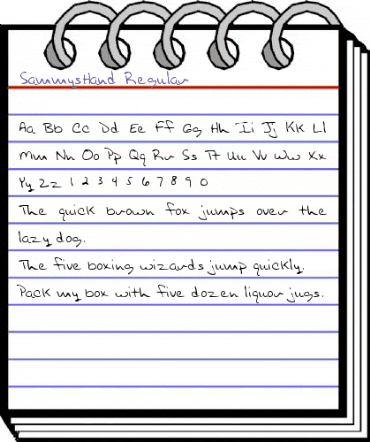 SammysHand Regular
Aa Bb Cc Dd Ee Ff Gg Hh Ii Jj Kk Ll
Mm Nn Oo Pp Qq Rr Ss Tt Uu Vv Ww Xx
Yy Zz 1 2 3 4 5 6 7 8 9 0
The quick brown fox jumps over the
lazy dog.
The five boxing wizards jump quickly.
Pack my box with five dozen liquor jugs.